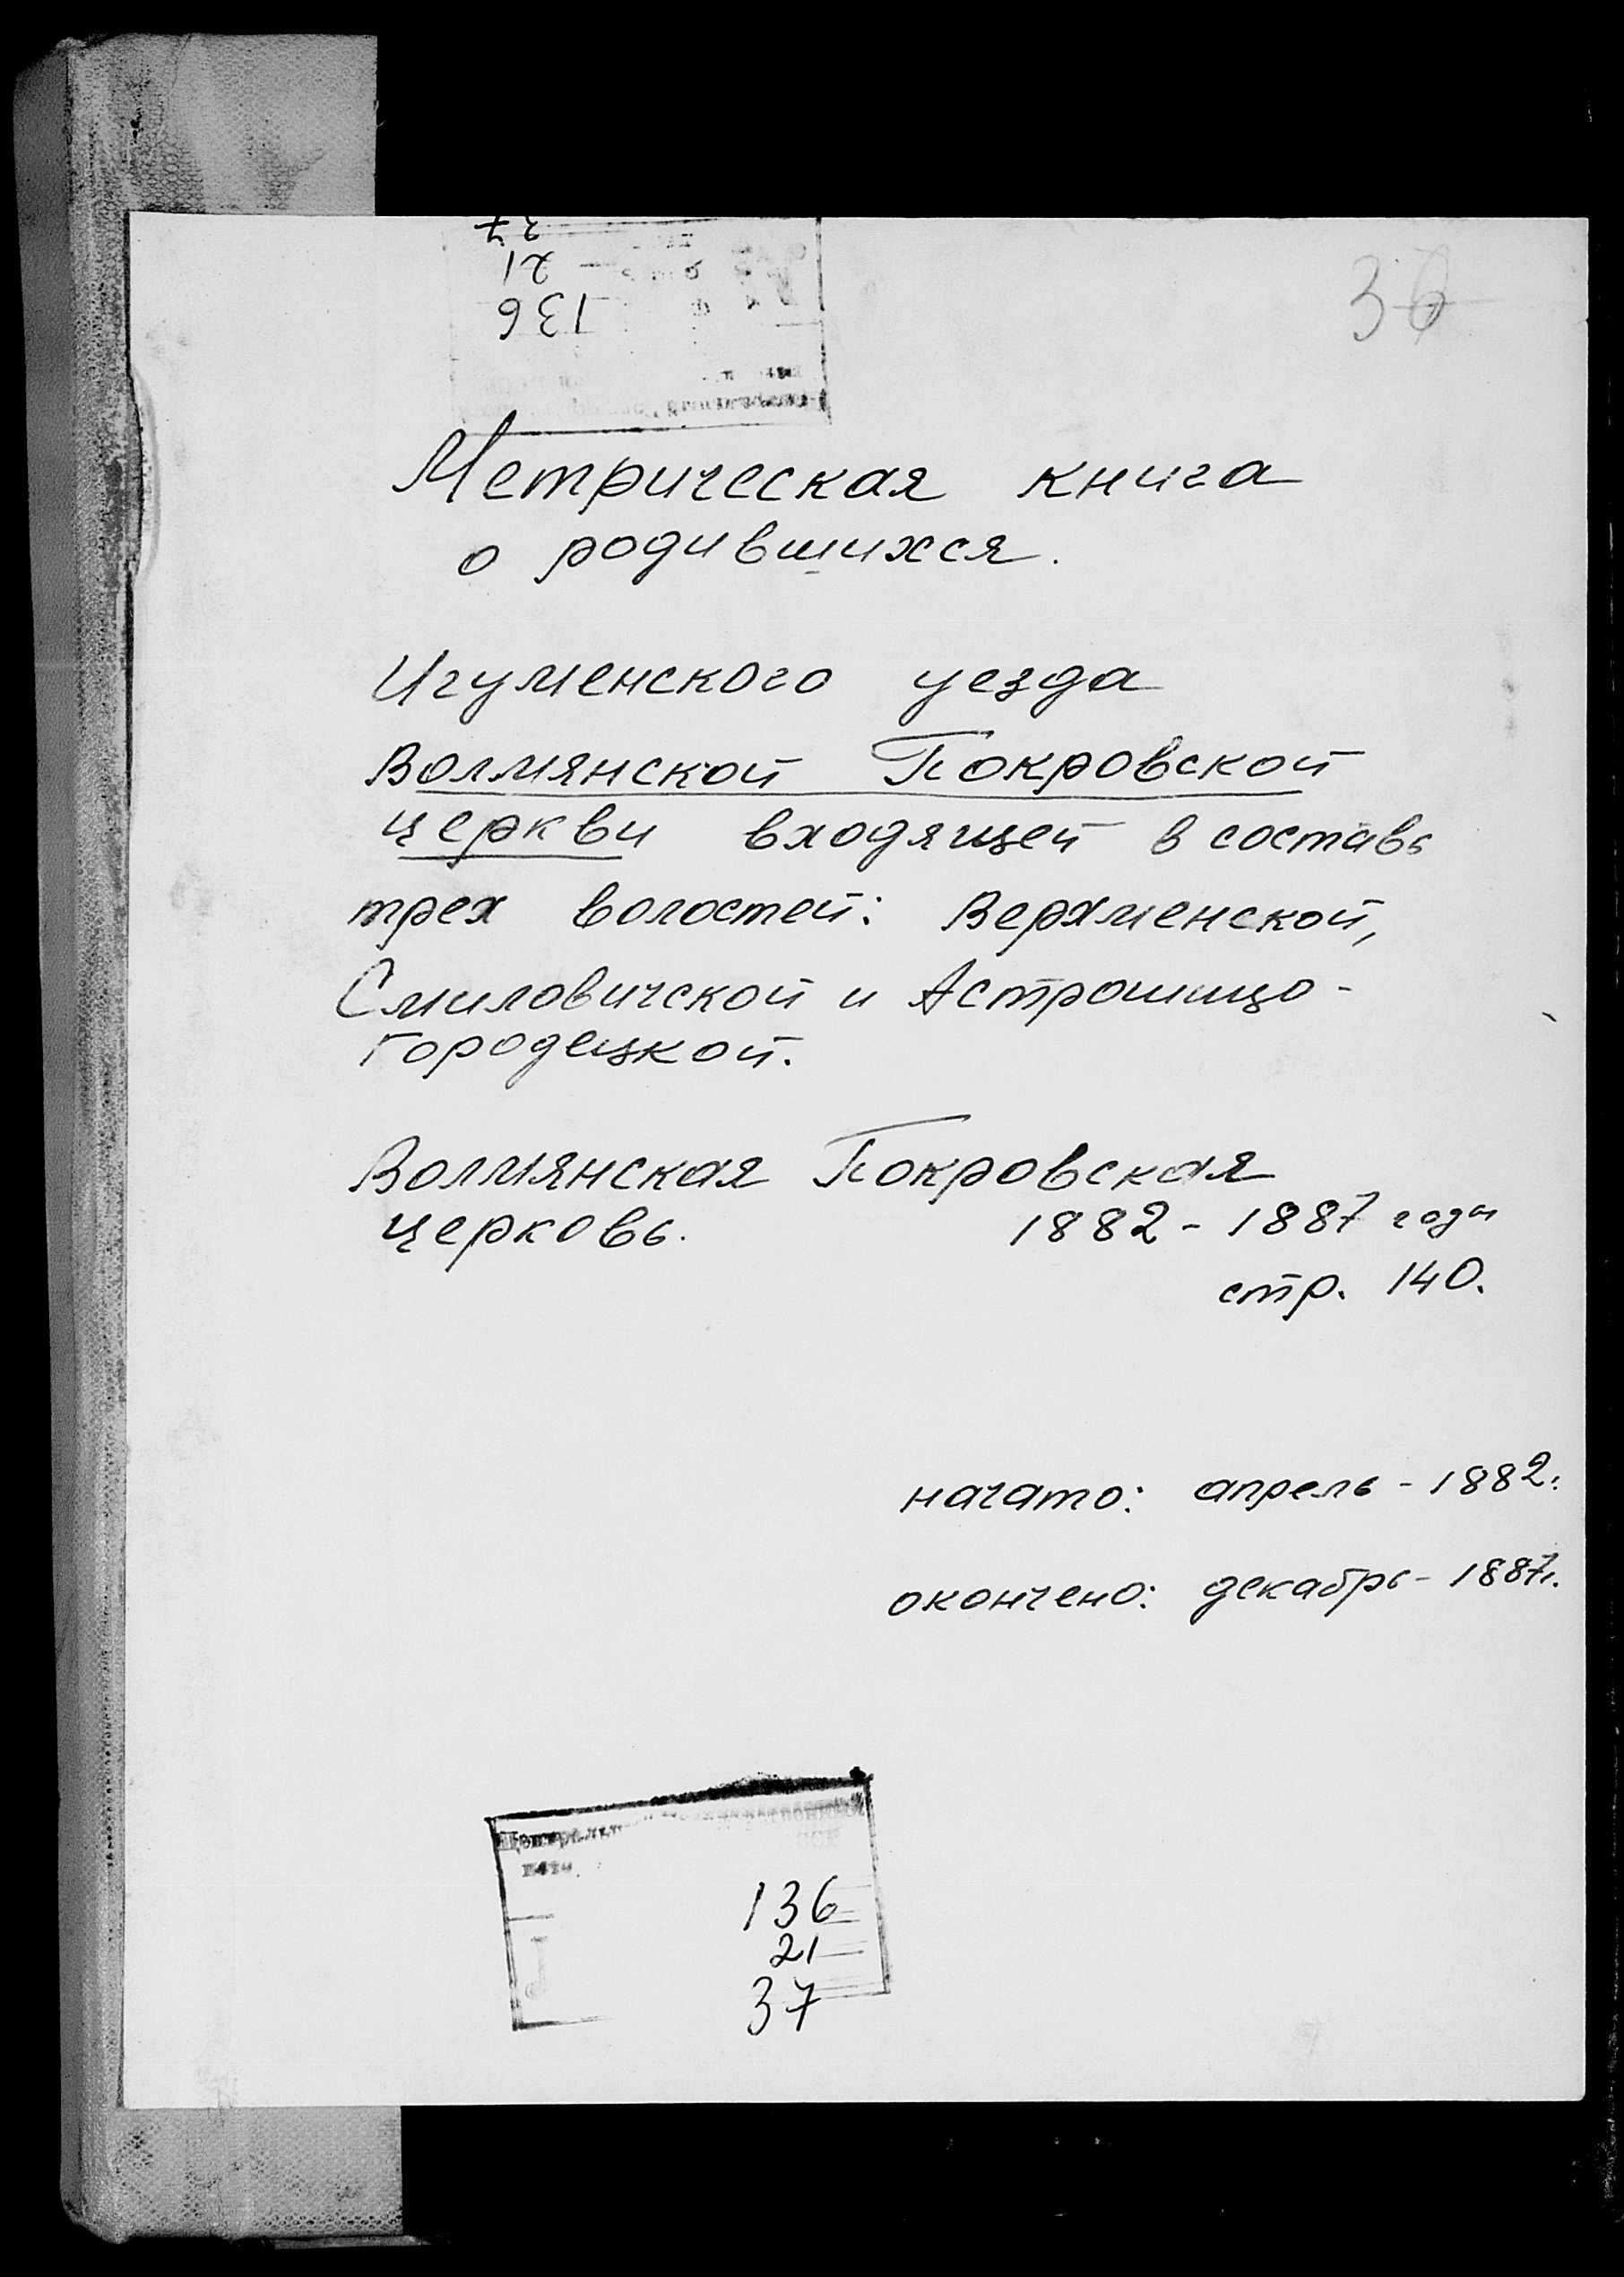 36
136
21
Метрическая книга
о родившихся.
Игуменского уезда
Волмянской Покровской
церкви входящей в составь
трех волостей: Верхменской,
Смиловичской и Астрошицо-
городецкой.
Волмянская Покровская
церковь.
1882 - 1887 годы
стр. 140.
начато: апрель - 1882г.
окончено: декабрь - 1887г.
136
21
37